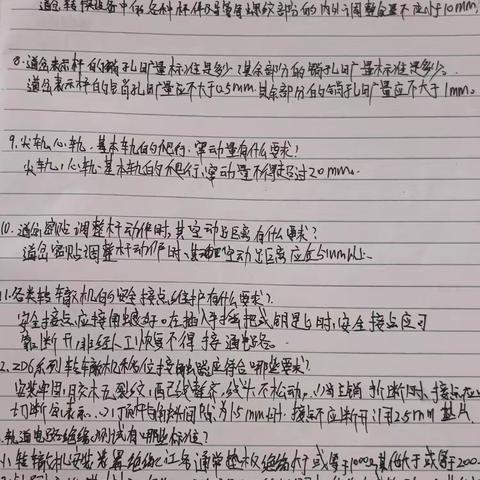 道岔转换设备中的各种杆件及导管等螺纹部分的内外调整余量不应小于10mm.
8.道岔表示杆的销孔旷量标准是多少?其余部分的销孔旷量标准是多少。
道岔表示杆的销孔旷量应不大于0.5mm其余部分的销孔旷量应不大于1mm。
9.尖轨、心轨、基本轨的爬行、窜动量有什么要求?
尖轨、心轨、基本轨的爬行、窜动量不得超过20mm.
10.道岔密贴调整杆动作时,其空动距离有什么要求?
道岔密贴调整杆动作时,其空动距离应在5mm以上.
11.各类转辙机的安全接点维护有什么要求?
安全接点应接触良好。在插入手摇把或钥匙时,安全接点应可
靠断开,非经人工恢复不得接通电路.
2.ZD6系列转辙机移位接触器应符合哪些要求?
安装牢固,胶木无裂纹,配线整齐,线头不松动,(1)当主销折断时,接点应
切断表示.(2)顶杆与触头间隙为1.5mm时,接点不应断开;用2.5mm垫片
轨道电路绝缘测试有哪些标准?
转辙机安装装置绝缘